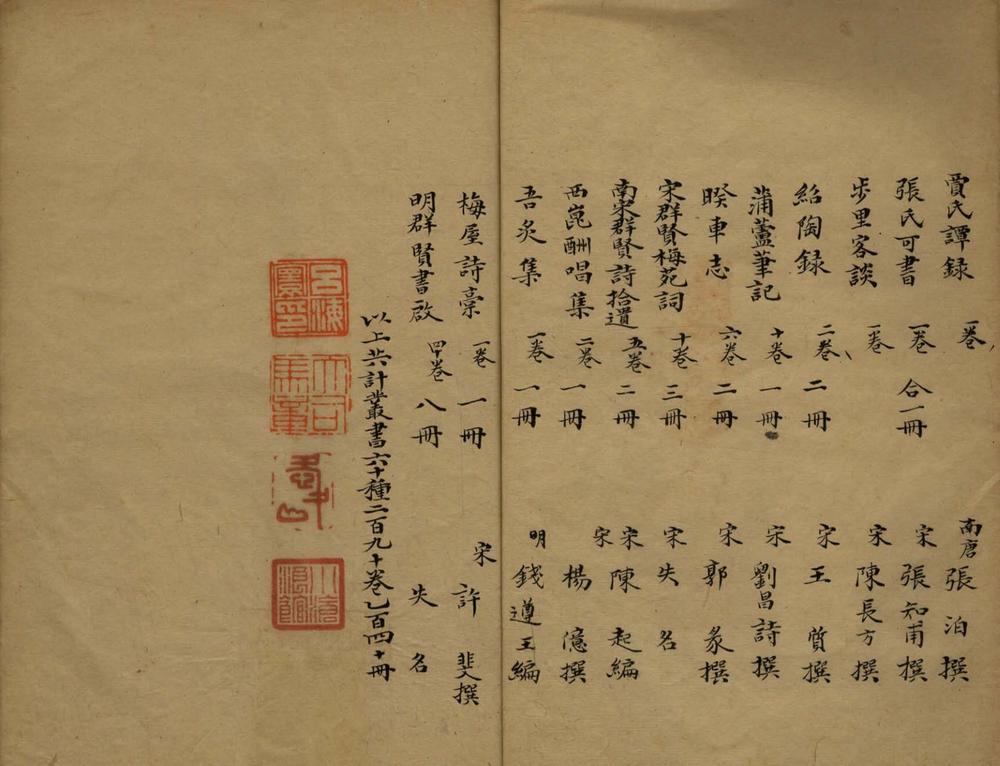 賈氏譚録 一卷 南唐 張泊 撰
張氏可書 一卷 合一冊 宋 張知甫 撰
步里客談 一卷 宋 陳長方 撰
紹陶録 二卷 二冊 宋 王質 撰
蒲蘆筆記 十卷 一冊 宋 劉昌詩 撰
暌車志 六卷 二冊 宋 郭彖 撰
宋群賢梅苑詞 十卷 三冊 宋 失名
南宋群賢詩拾遺 五卷 二冊 宋 陳起編
西崑酬唱集 二卷 一冊 宋 楊億撰
吾炙集 一卷 一冊 明 錢遵王編
梅屋詩稾 一卷 一冊 宋 許棐撰
明群賢書啟 四十卷 八冊 失名
以上共計叢書六十種二百九十卷乙百四十冊